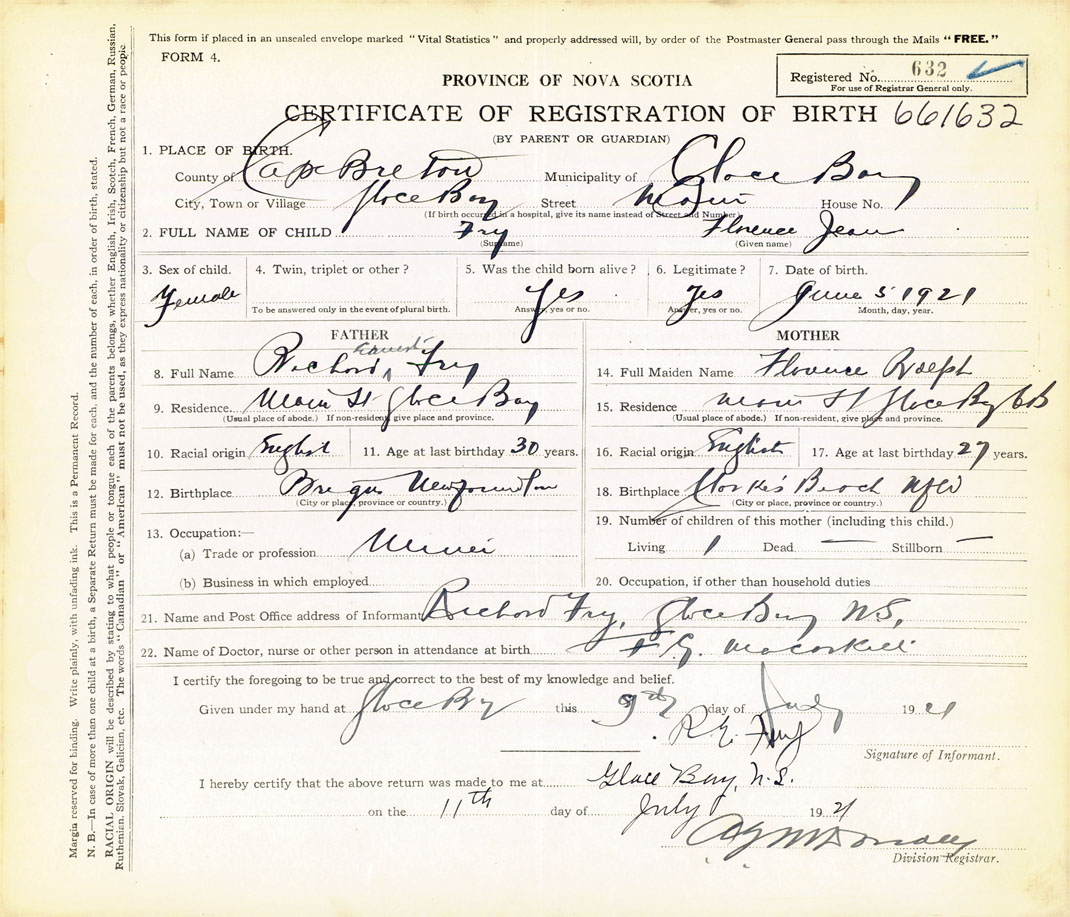 This form if placed in an unsealed envelope marked "Vital Statistics" and properly addressed will, by order of the Postmaster General pass through the Mails "FREE."
FORM 4.
Registered No. 632
For use of Registrar General only.
PROVINCE OF NOVA SCOTIA
CERTIFICATE OF REGISTRATION OF BIRTH 661632
(BY PARENT OR GUARDIAN)
1. PLACE OF BIRTH.
County of Cape Breton Municipality of Glace Bay
City, Town or Village Glace Bay Street Main House No.
(If birth occurred in a hospital, give its name instead of Street and Number)
2. FULL NAME OF CHILD Fry Florence Jean
(Surname) (Given name)
3. Sex of child. 4. Twin, triplet or other? 5. Was the child born alive? 6. Legitimate? 7. Date of birth.
Female Yes Yes June 5 1921
To be answered only in the event of plural birth. Answer, yes or no. Answer, yes or no. Month, day, year.
FATHER MOTHER
8. Full Name Richard Ernest Fry 14. Full Maiden Name Florence
9. Residence Main St Glace Bay 15. Residence Main St Glace Bay CB
(Usual place of abode.) If non-resident, give place and province. (Usual place of abode.) If non-resident, give place and province.
10. Racial origin English 11. Age at last birthday 30 years. 16. Racial origin English 17. Age at last birthday 27 years.
12. Birthplace Brigus 18. Birthplace Beach Nfld
(City or place, province or country.) (City or place, province or country.)
13. Occupation:— 19. Number of children of this mother (including this child.)
(a) Trade or profession Miner Living 1 Dead — Stillborn —
(b) Business in which employed 20. Occupation, if other than household duties
21. Name and Post Office address of Informant Richard Fry, Glace Bay N.S,
22. Name of Doctor, nurse or other person in attendance at birth
I certify the foregoing to be true and correct to the best of my knowledge and belief.
Given under my hand at Glace Bay this 9th day of July 1921
R. E. Fry
Signature of Informant.
I hereby certify that the above return was made to me at Glace Bay, N.S.
on the 11th day of July 1921
Division Registrar.
Margin reserved for binding. Write plainly, with unfading ink. This is a Permanent Record.
N. B.—In case of more than one child at a birth, a Separate Return must be made for each, and the number of each, in order of birth, stated.
RACIAL ORIGIN will be described by stating to what people or tongue each of the parents belongs, whether English, Irish, Scotch, French, German, Russian,
Ruthenian, Slovak, Galician, etc. The words "Canadian" or "American" must not be used, as they express nationality or citizenship but not a race or people.